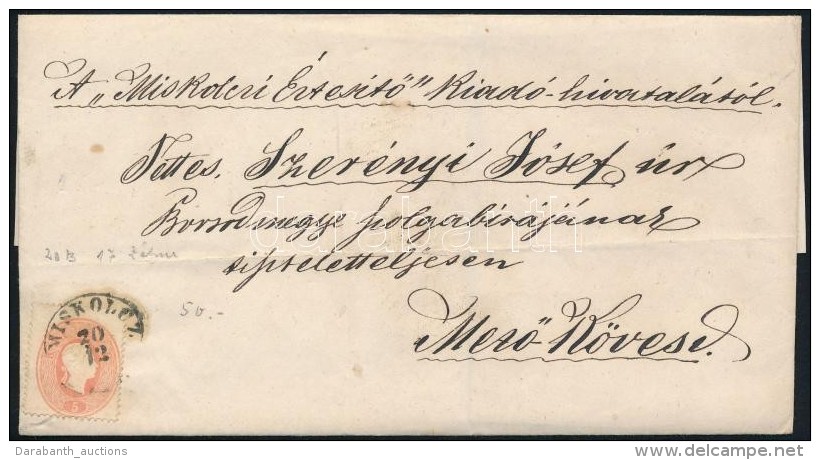 A „Miskolczi Értesítő" Kiadó-hivatalától.
Tettes. Szerényi Jósef úr
Borsodmegye szolgabirájának
tiszteletteljesen
Mező-Kövesd.
darabanth
50.-
MISKOLCZ.
20
12
5
Darabanth_auctions
delcampe.net